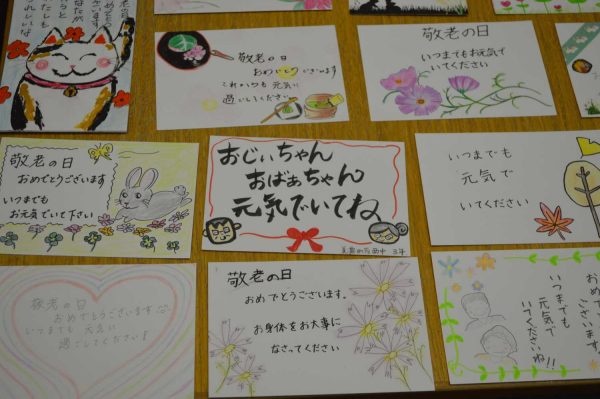 敬老の日
おめでとうございます
元気に
過ごしてください
敬老の日
いつまでもお元気で
いてください
敬老の日
おめでとうございます
いつまでも
お元気でいて下さい
おじいちゃん
おばあちゃん
元気でいてね
いつまでも
元気で
いてください
敬老の日
おめでとうございます
いつまでも元気に
過ごしてください!
敬老の日
おめでとうございます。
お身体をお大事に
なさってください
いつまでも
元気で
いてくださいね!!